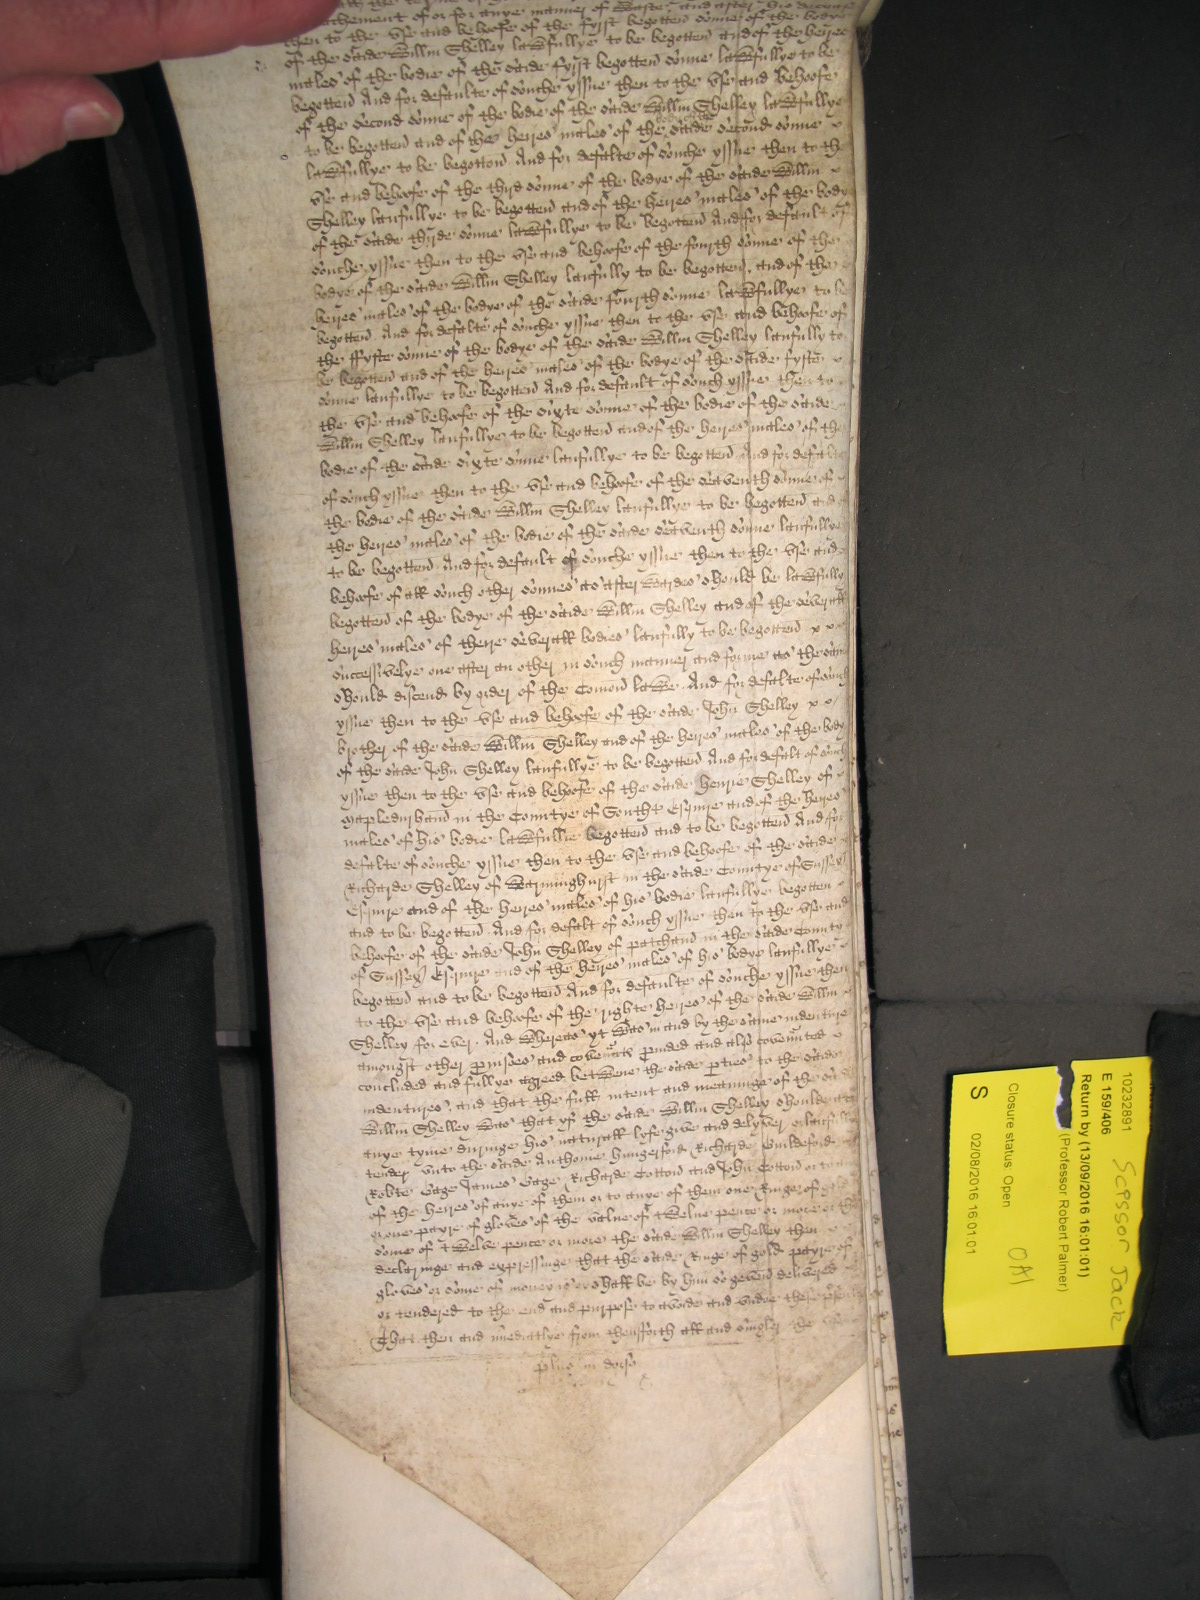 of or for anye manner of Waste, and after his decease
then to the vse and behoofe of the fyrst begotten sonne of the bodye
of the saide Willm Shelley lawfullye to be begotten and of the heires
males of the bodie of the saide fyrst begotten sonne lawfullye to be
begotten And for defaulte of souche yssue then to the vse and behoofe
of the second sonne of the bodie of the saide Willm Shelley lawfullye
to be begotten and of the heires males of the saide second sonne
lawfullye to be begotten And for defalte of souche yssue then to the
vse and behoofe of the third sonne of the bodye of the saide Willm
Shelley laufullye to be begotten and of the heires males of the body
of the saide thirde sonne lawfullye to be begotten And for default of
souche yssue then to the vse and behoofe of the fourth sonne of the
bodye of the saide Willm Shelley laufully to be begotten, and of the
heires males of the bodye of the saide fourth sonne lawfullye to be
begotten. And for defalte of souche yssue then to the vse and behoofe of
the ffyfte sonne of the bodye of the saide Willm Shelley laufully to
be begotten and of the heires males of the bodye of the saide fyfte
sonne laufullye to be begotten And for default of souch yssue then to
the vse and behoofe of the sixte sonne of the bodie of the saide
Willm Shelley laufullye to be begotten and of the heires males of the
bodie of the saide sixte sonne laufullye to be begotten And for defalte
of souch yssue then to the vse and behoofe of the seaventh sonne of
the bodie of the saide Willm Shelley laufullye to be begotten and of
the heires males of the bodie of the saide seaventh sonne laufullye
to be begotten And for default of souche yssue then to the vse and
behoofe of all souch other sonnes as after wardes should be lawfully
begotten of the bodye of the saide Willm Shelley and of the severall
heires males of theire severall bodies laufully to be begotten x x
successivelye one after an other in souch manner and forme as the same
should discend by order of the Comon lawe. And for defalte of souch
yssue then to the vse and behoofe of the saide John Shelley x x
brother of the saide Willm Shelley and of the heires males of the body
of the saide John Shelley laufullye to be begotten And for defalt of souch
yssue then to the vse and behoofe of the saide Henrie Shelley of
Mapledurham in the Countye of Southt Esquire and of the heires
males of his bodie lawfullie begotten and to be begotten And for
defalte of souche yssue then to the vse and behoofe of the saide
Richarde Shelley of Warminghurst in the saide Countye of Sussex
Esquire and of the heires males of his bodie laufullye begotten
and to be begotten. And for defalt of souch yssue then to the vse and
behoofe of the saide John Shelley of patcham in the saide County
of Sussex Esquire and of the heires males of his bodye laufullye
begotten and to be begotten And for defaulte of souche yssue then
to the vse and behoofe of the righte heires of the saide Willm
Shelley for ever. And Whereas yt Was in and by the same indenture
amongst other pmisses and covenants pvided and also covenated
concluded and fullye agreed betwene the saide pties to the saide
indentures, and that the full intent and meaninge of the saide
Willm Shelley Was that yf the saide Willm Shelley shoulde att
anye tyme duringe his naturall lyfe give and delyver or laufullye
tender vnto the saide Anthonie Hungerford Richarde Guildeforde
Robte Gage James Gage Richarde Cotton and John Cotton or to anye
of the heires of anye of them or to anye of them one Ringe of gold
or one payre of gloves of the value of twelve pence or more or the
some of twelve pence or more the saide Willm Shelley then
declaringe and expressinge that the saide Ringe of gold payre of
gloves or some of money is or shall be by him so geven delivered
or tendered to the end and purpose to avoide and vndoe these
That then and imediatlye from thensforth all and singler the vses
plus in dorso
10232891
E 159/406
Return by (13/09/2016 16:01:01)
(Professor Robert Palmer)
Closure status: Open
S 02/08/2016 16:01:01
Scissor Jack
OA1